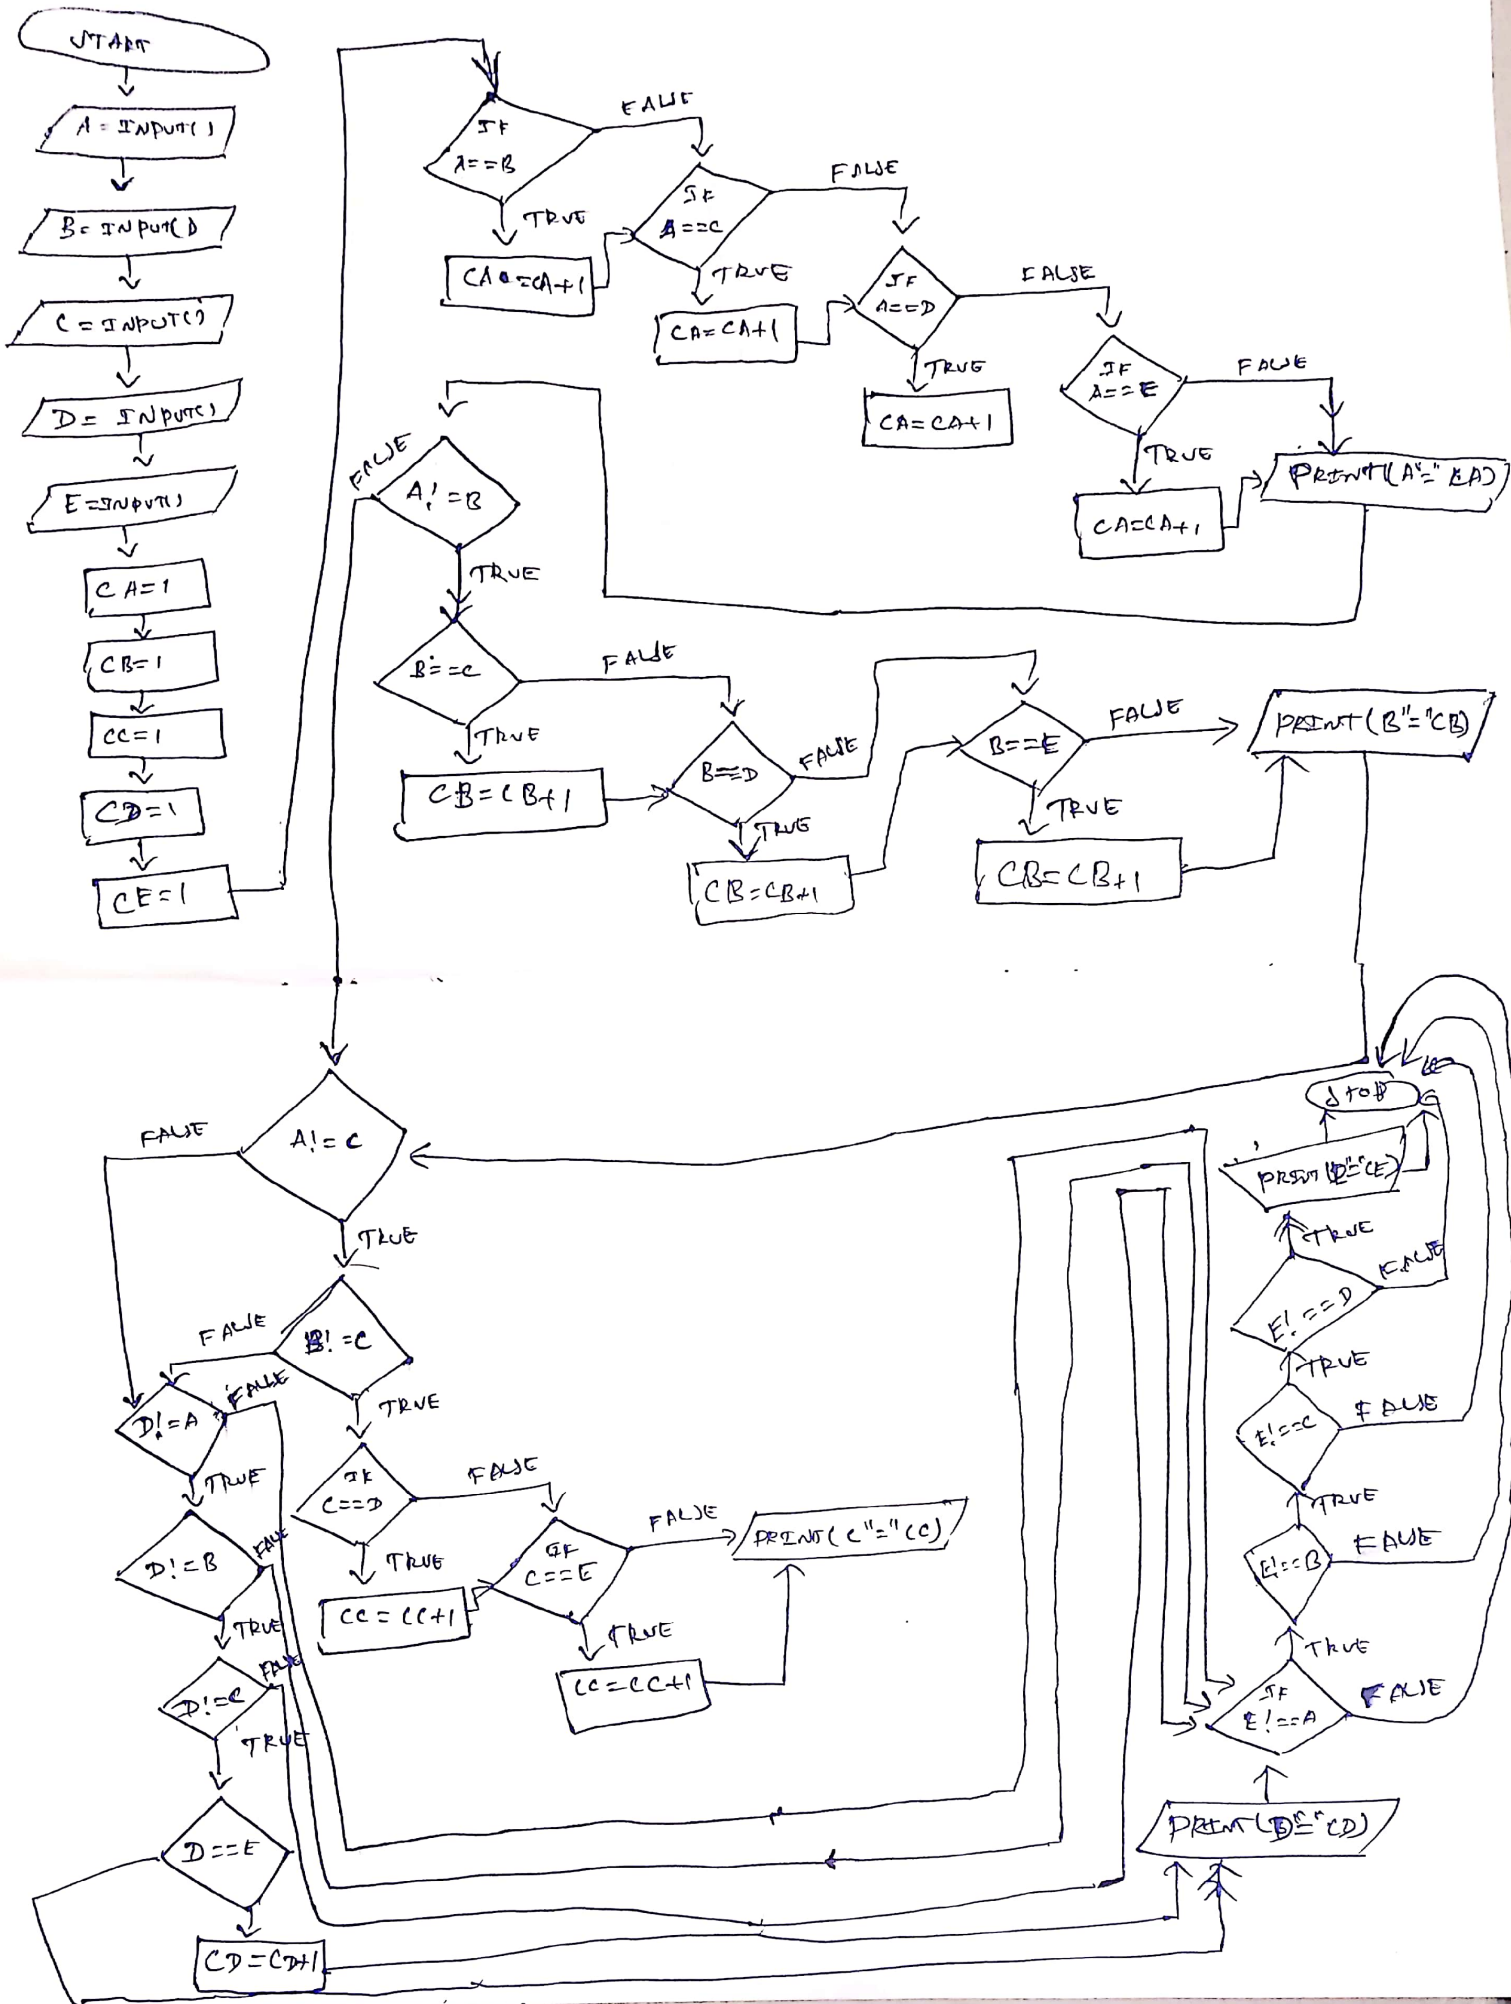 START
A = INPUT()
B= INPUT()
C = INPUT()
D = INPUT()
E = INPUT()
CA=1
CB=1
CC=1
CD=1
CE=1
IF
A==B
FALSE
TRUE
CA=CA+1
IF
A==C
FALSE
TRUE
CA=CA+1
IF
A==D
FALSE
TRUE
CA=CA+1
IF
A==E
FALSE
TRUE
CA=CA+1
PRINT(A"="CA)
A!=B
FALSE
TRUE
B==C
FALSE
TRUE
CB=CB+1
B==D
FALSE
TRUE
CB=CB+1
B==E
FALSE
TRUE
CB=CB+1
PRINT(B"="CB)
A!=C
FALSE
TRUE
B!=C
FALSE
TRUE
IF
C==D
FALSE
TRUE
CC=CC+1
IF
C==E
FALSE
TRUE
CC=CC+1
PRINT(C"="CC)
D!=A
FALSE
TRUE
D!=B
FALSE
TRUE
D!=C
FALSE
TRUE
D==E
CD=CD+1
PRINT(D"="CD)
IF
E!==A
FALSE
TRUE
E!==B
FALSE
TRUE
E!==C
FALSE
TRUE
E!==D
FALSE
TRUE
PRINT(E"="CE)
STOP